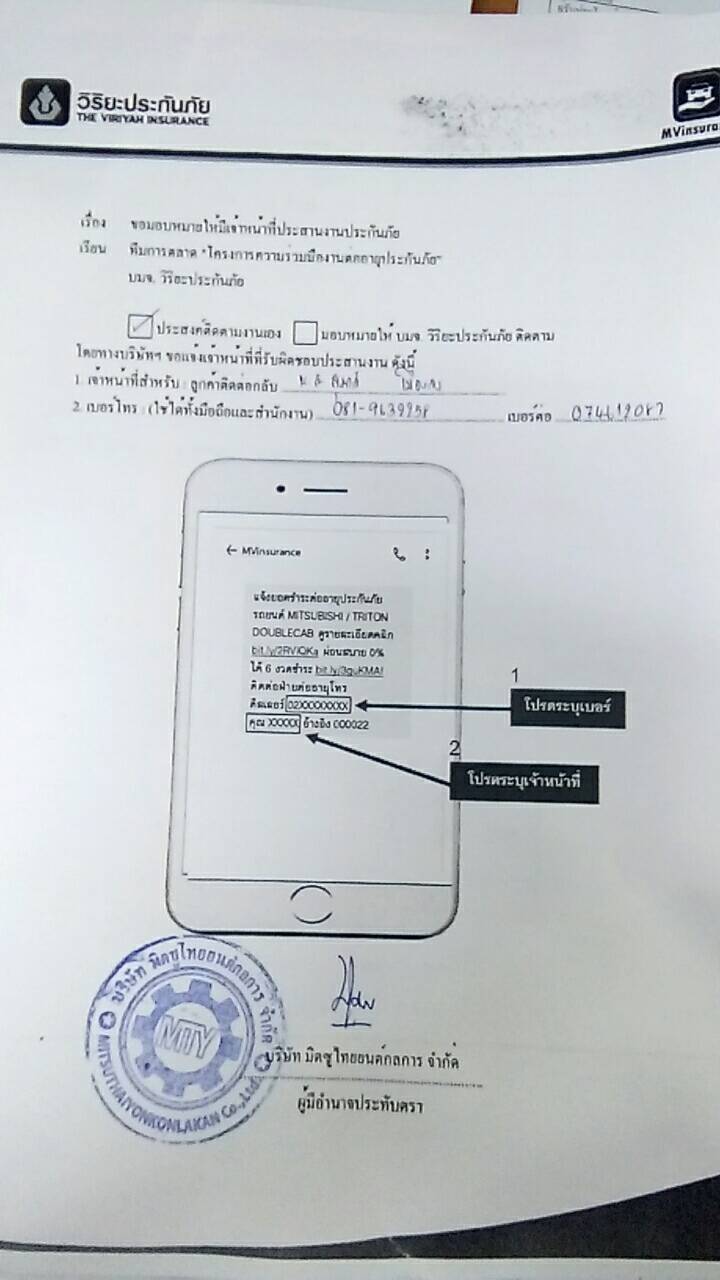 วิริยะประกันภัย
THE VIRIYAH INSURANCE
MVinsura
เรื่อง ขอมอบหมายให้มีเจ้าหน้าที่ประสานงานประกันภัย
เรียน ทีมการตลาด "โครงการความร่วมมืองานต่ออายุประกันภัย"
บมจ. วิริยะประกันภัย
ประสงค์ติดตามงานเอง มอบหมายให้ บมจ. วิริยะประกันภัย ติดตาม
โดยทางบริษัทฯ ขอแจ้งเจ้าหน้าที่ที่รับผิดชอบประสานงาน ดังนี้
1. เจ้าหน้าที่สำหรับ : ลูกค้าติดต่อกลับ
2. เบอร์โทร : (ใช้ได้ทั้งมือถือและสำนักงาน) 081-9639958 เบอร์ต่อ 074612087
← MVinsurance
แจ้งยอดชำระต่ออายุประกันภัย
รถยนต์ MITSUBISHI / TRITON
DOUBLECAB ดูรายละเอียดคลิก
bit.ly/2RViQKa ผ่อนสบาย 0%
ได้ 6 งวดชำระ bit.ly/3guKMAf
ติดต่อฝ่ายต่ออายุโทร
ดีลเลอร์ 02XXXXXXXX
คุณ XXXXX อ้างอิง 000022
1
โปรดระบุเบอร์
2
โปรดระบุเจ้าหน้าที่
บริษัท มิตซูไทยยนต์กลการ จำกัด
MTY
MITSUTHAIYONKONLAKAN Co.,Ltd.
บริษัท มิตซูไทยยนต์กลการ จำกัด
ผู้มีอำนาจประทับตรา